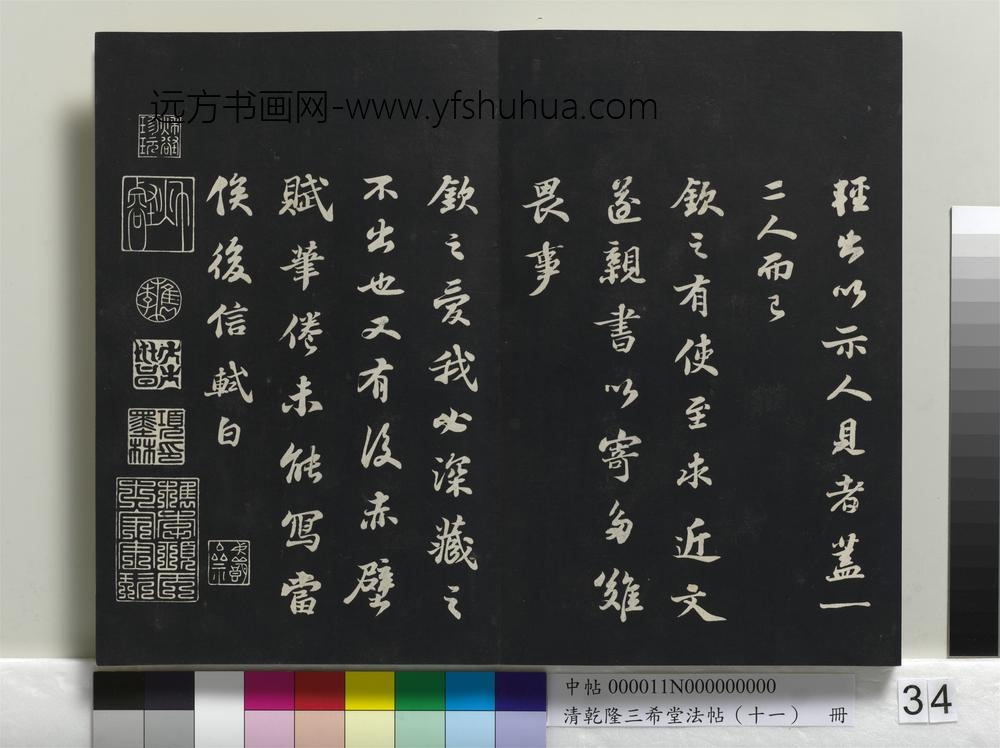 远方书画网-www.yfshuhua.com
輕出以示人見者盖一
二人而已
欽之有使至求近文
遂親書以寄多難
畏事
欽之愛我必深藏之
不出也又有後赤壁
賦筆倦未能寫當
俟後信軾白
項墨林印
中帖 000011N000000000
清乾隆三希堂法帖（十一） 冊
34